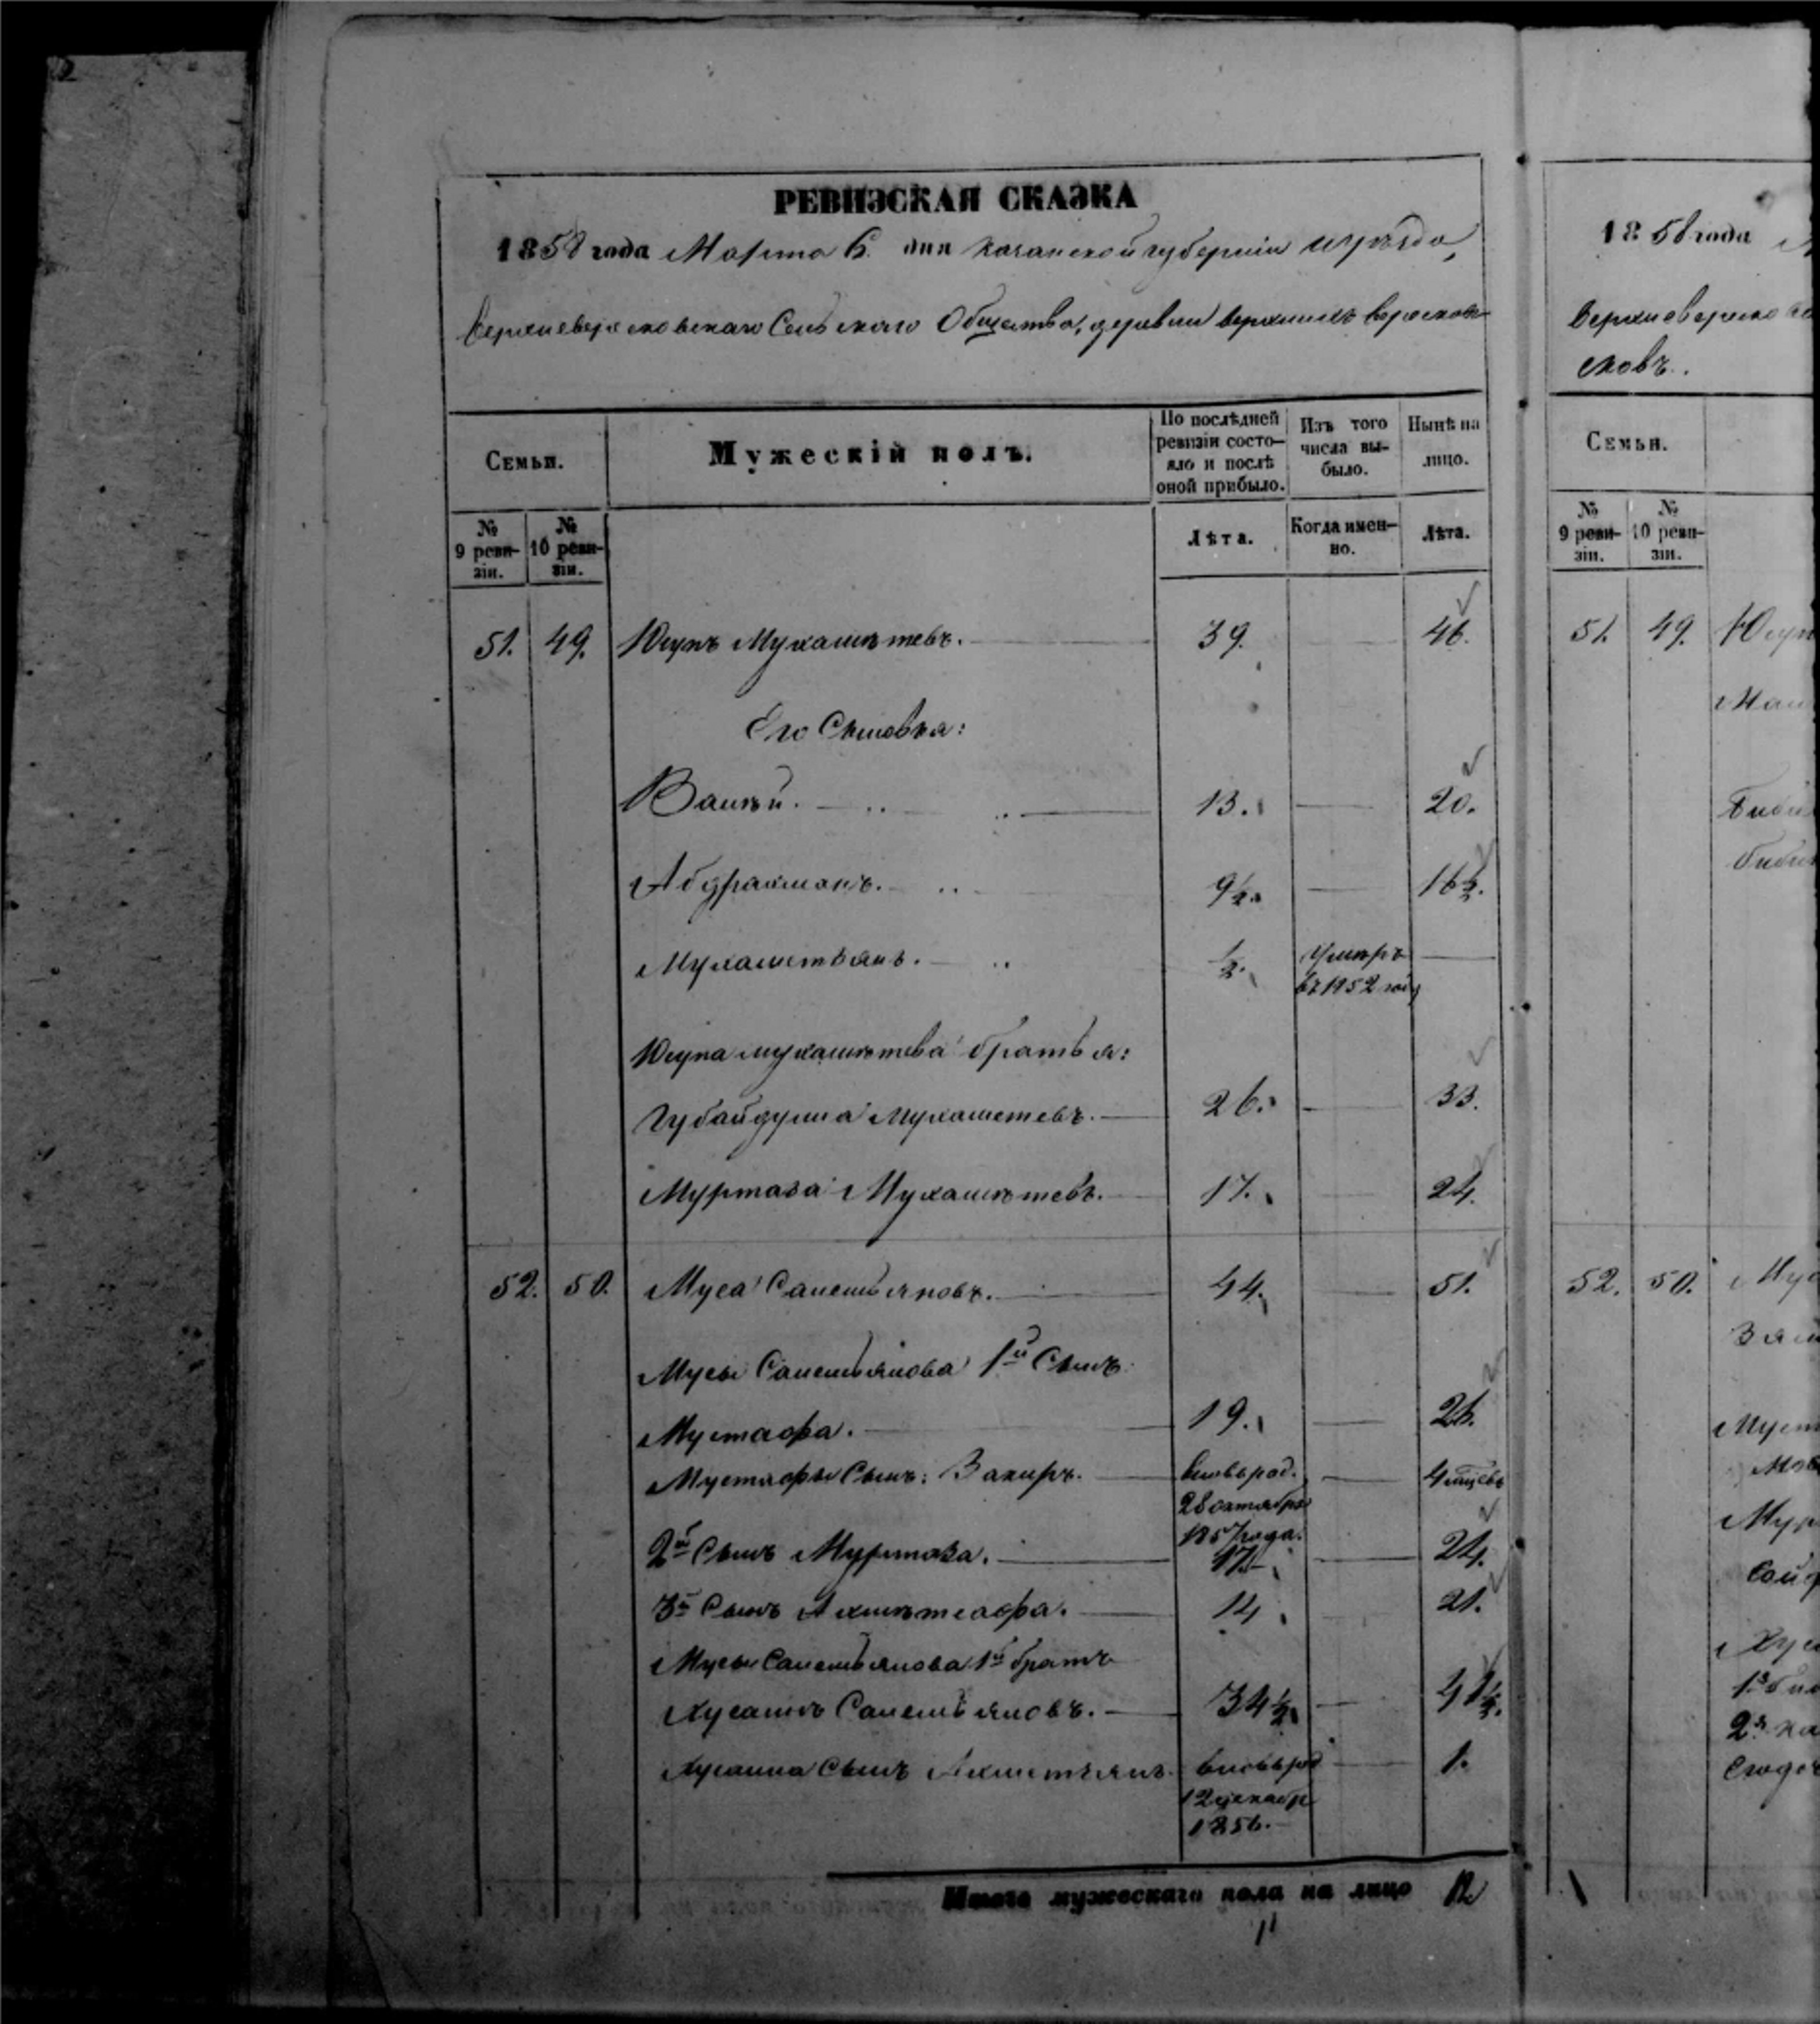 РЕВИЗСКАЯ СКАЗКА
1858 года Марта 6. дня Казанской губернии и уѣзда,
Верхневерескова Сельскаго Общества, деревни верхнихъ Вересков
Семьи.
Мужескій полъ.
По послѣдней ревизіи состояло и послѣ оной прибыло.
Изъ того числа выбыло.
Нынѣ на лицо.
№ 9 ревизіи.
№ 10 ревизіи.
Лѣта.
Когда именно.
Лѣта.
51. 49. Юсупъ Мухамѣтевъ. 39. 46.
Его Сыновья:
Валѣй. 13. 20.
Абдрахманъ. 9½. 16½.
Мухаметзянъ. ½. Умеръ
въ 1852 году
Юсупа мухамѣтева братья:
Губайдулла Мухаметевъ. 26. 33.
Муртаза Мухамѣтевъ. 17. 24.
52. 50. Муса Салемьяновъ. 44. 51.
Мусы Салемьянова 1й Сынъ
Мустафа. 19. 26.
Мустафы Сынъ: Закиръ. вновь род. 4 мѣсецъ
28 октября
1857 года.
2й Сынъ Муртаза. 17. 24.
3й Сынъ Ахметсафа. 14 21.
Мусы Салемьянова 1й братъ
Хусаинъ Салемьяновъ. 34½ 41½.
Хусаина Сынъ Ахметзянъ. вновь род 1.
12 декабр
1856.
Итого мужескаго пола на лицо 12
11
1858 года
Верхневереско
сковъ.
Семьи.
№ 9 ревизіи.
№ 10 ревизіи.
51. 49. Юсуп
52. 50. Мус